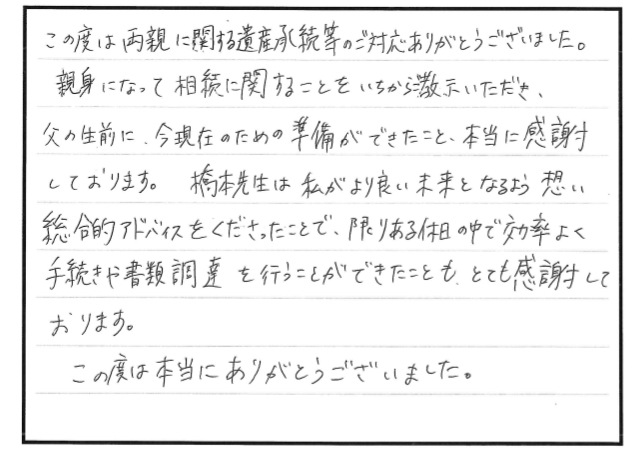 この度は両親に関する遺産承続等のご対応ありがとうございました。
親身になって相続に関することをいちからご教示いただき、
父の生前に、今現在のための準備ができたこと、本当に感謝
しております。 橋本先生は私がより良い未来となるよう想い
総合的アドバイスをくださったことで、限りある休日の中で効率よく
手続きや書類調達を行うことができたことも、とても感謝して
おります。
この度は本当にありがとうございました。